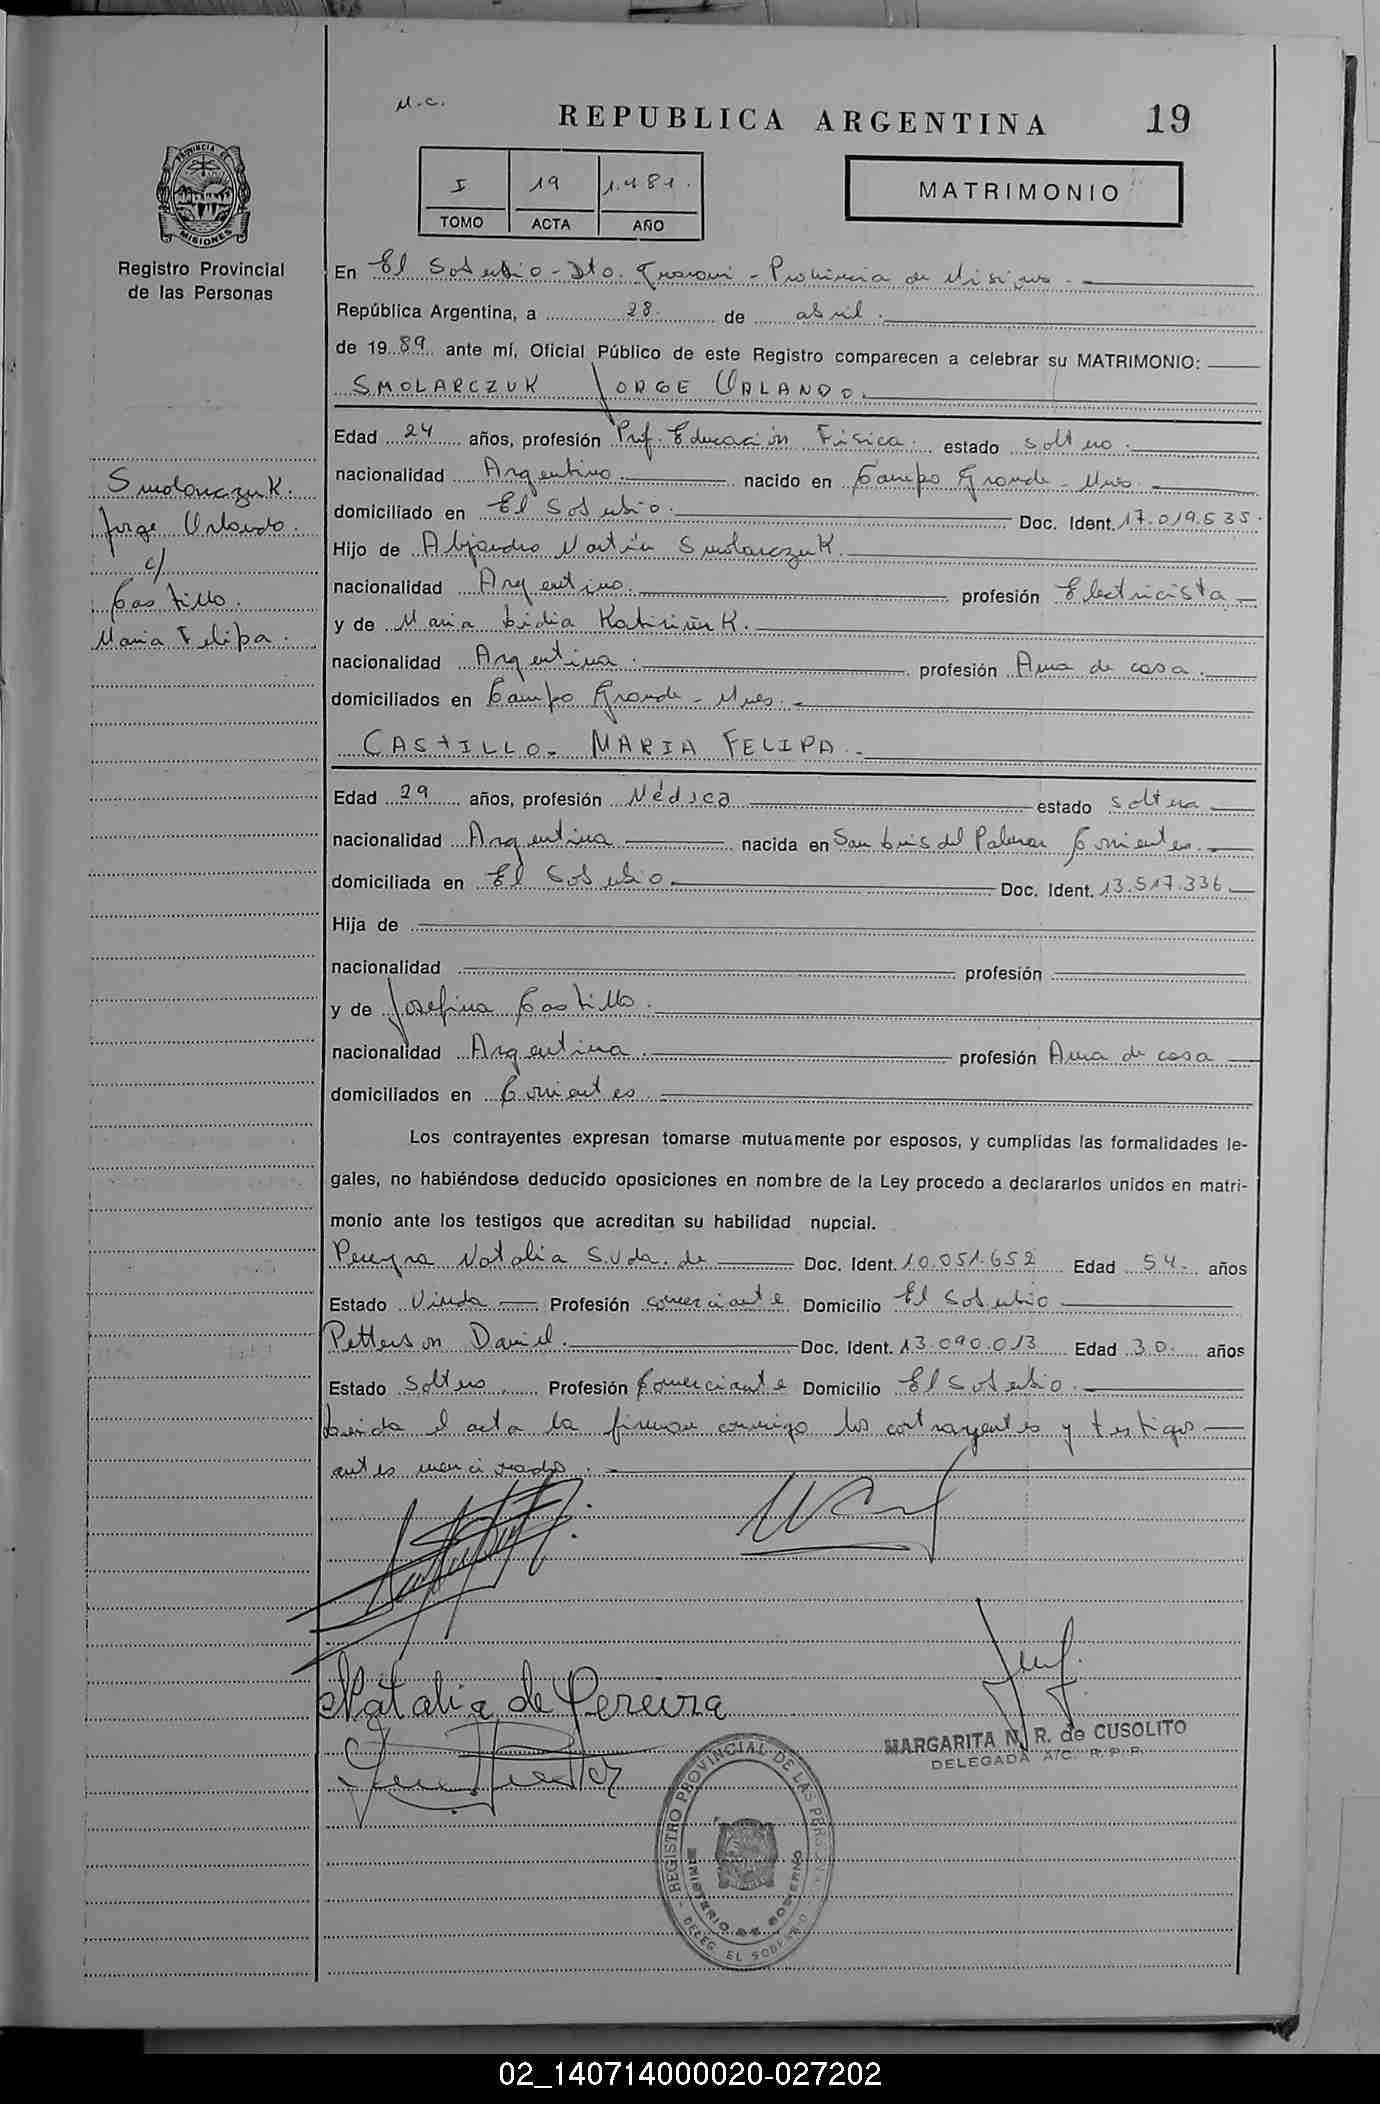 M.C.
REPUBLICA ARGENTINA
19
I 19 1.989.
TOMO ACTA AÑO
MATRIMONIO
PROVINCIA DE MISIONES
Registro Provincial
de las Personas
En El Soberbio - Dto. Guaraní - Provincia de Misiones.
República Argentina, a 28. de abril.
de 1989 ante mí, Oficial Público de este Registro comparecen a celebrar su MATRIMONIO:
SMOLARCZUK JORGE ORLANDO.
Edad 24 años, profesión Prof. Educación Física. estado soltero.
nacionalidad Argentino. nacido en Campo Grande - Mnes.
domiciliado en El Soberbio. Doc. Ident. 17.019.535.
Hijo de Alejandro Martín Smolarczuk.
nacionalidad Argentino. profesión Electricista
y de Maria Lidia
nacionalidad Argentina. profesión Ama de casa.
domiciliados en Campo Grande - Mnes.
Smolarczuk.
Jorge Orlando.
c/
Castillo.
Maria Felipa.
CASTILLO - MARIA FELIPA.
Edad 29 años, profesión Médica estado soltera
nacionalidad Argentina nacida en San Luis del Palmar Corrientes.
domiciliada en El Soberbio. Doc. Ident. 13.517.336
Hija de
nacionalidad profesión
y de Josefina Castillo.
nacionalidad Argentina. profesión Ama de casa
domiciliados en Corrientes
Los contrayentes expresan tomarse mutuamente por esposos, y cumplidas las formalidades le-
gales, no habiéndose deducido oposiciones en nombre de la Ley procedo a declararlos unidos en matri-
monio ante los testigos que acreditan su habilidad nupcial.
Pereyra Natalia S. Vda. de Doc. Ident. 10.051.652 Edad 54. años
Estado Viuda Profesión comerciante Domicilio El Soberbio
Petterson Daniel. Doc. Ident. 13.090.013 Edad 30. años
Estado Soltero Profesión Comerciante Domicilio El Soberbio.
Leida el acta la firman conmigo los contrayentes y testigos
antes mencionados.
Natalia de Pereira
MARGARITA N. R. de CUSOLITO
DELEGADA A/C. R.P.P.
REGISTRO PROVINCIAL DE LAS PERSONAS
MINISTERIO DE GOBIERNO
DELEG. EL SOBERBIO
02_140714000020-027202